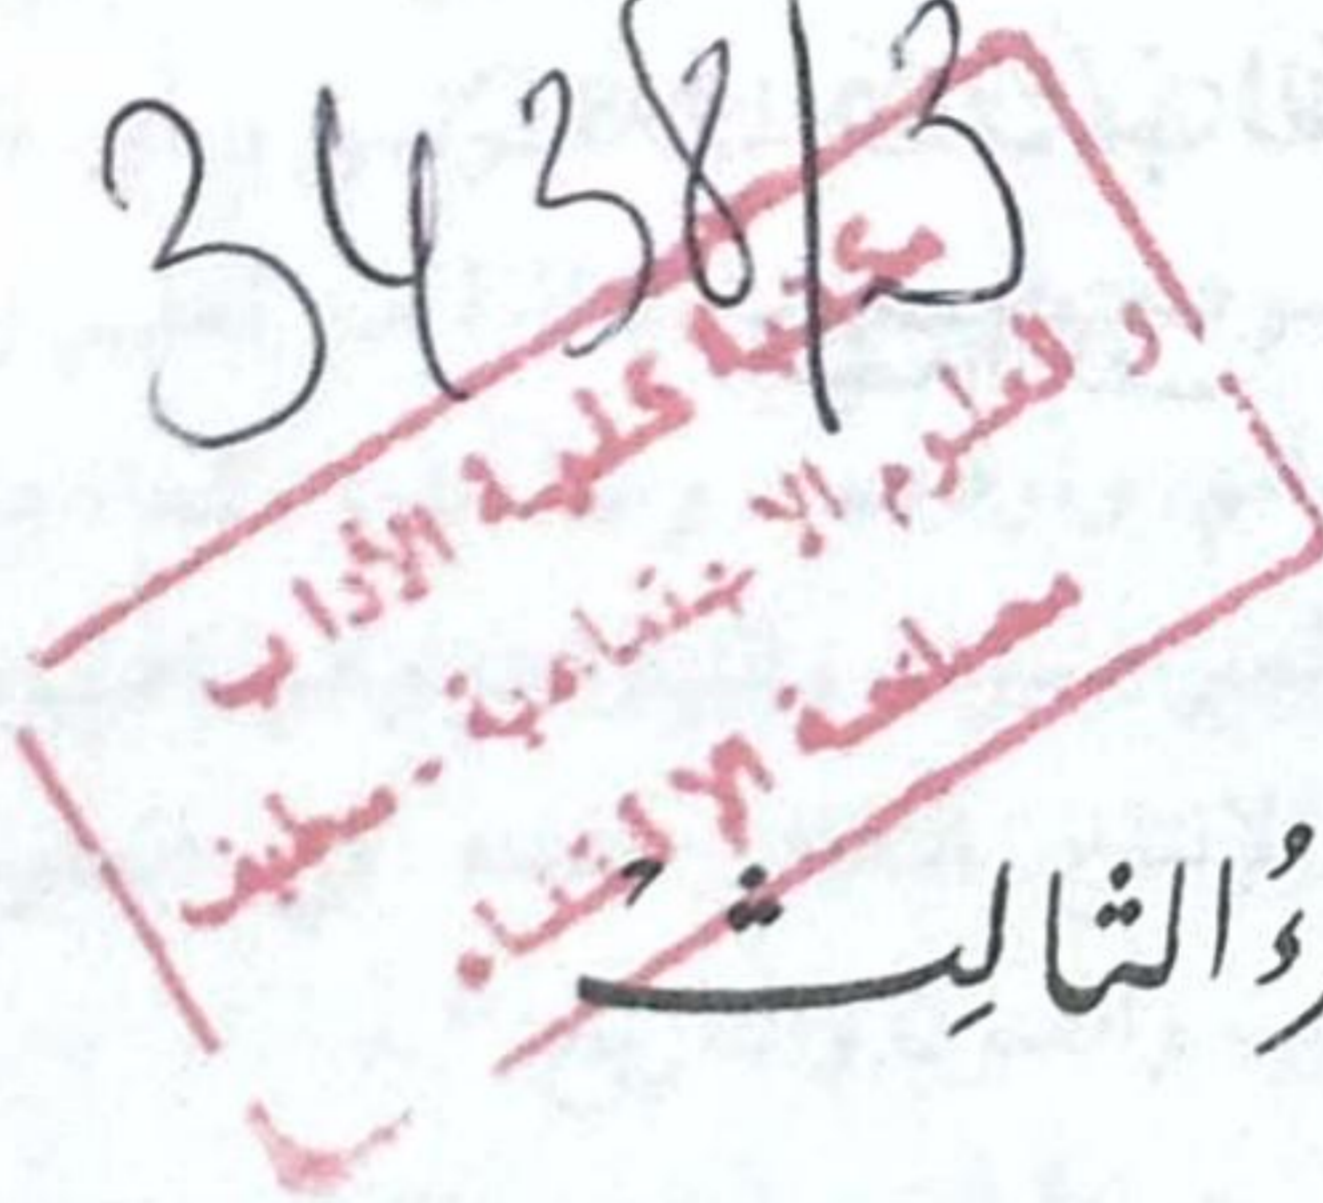 3438/3
كلية الآداب
و العلوم الإجتماعية . سطيف
مصلحة الإقتناء
الثالِثُ